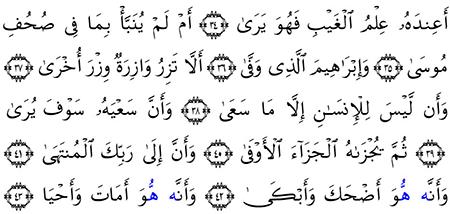 أَعِندَهُۥ عِلْمُ ٱلْغَيْبِ فَهُوَ يَرَىٰٓ ﴿٣٤﴾ أَمْ لَمْ يُنَبَّأْ بِمَا فِى صُحُفِ
مُوسَىٰ ﴿٣٥﴾ وَإِبْرَٰهِيمَ ٱلَّذِى وَفَّىٰٓ ﴿٣٦﴾ أَلَّا تَزِرُ وَازِرَةٌ وِزْرَ أُخْرَىٰ ﴿٣٧﴾
وَأَن لَّيْسَ لِلْإِنسَٰنِ إِلَّا مَا سَعَىٰ ﴿٣٨﴾ وَأَنَّ سَعْيَهُۥ سَوْفَ يُرَىٰ
﴿٣٩﴾ ثُمَّ يُجْزَىٰهُ ٱلْجَزَآءَ ٱلْأَوْفَىٰ ﴿٤٠﴾ وَأَنَّ إِلَىٰ رَبِّكَ ٱلْمُنتَهَىٰ ﴿٤١﴾
وَأَنَّه هُّوَ أَضْحَكَ وَأَبْكَىٰ ﴿٤٢﴾ وَأَنَّه هُّوَ أَمَاتَ وَأَحْيَا ﴿٤٣﴾